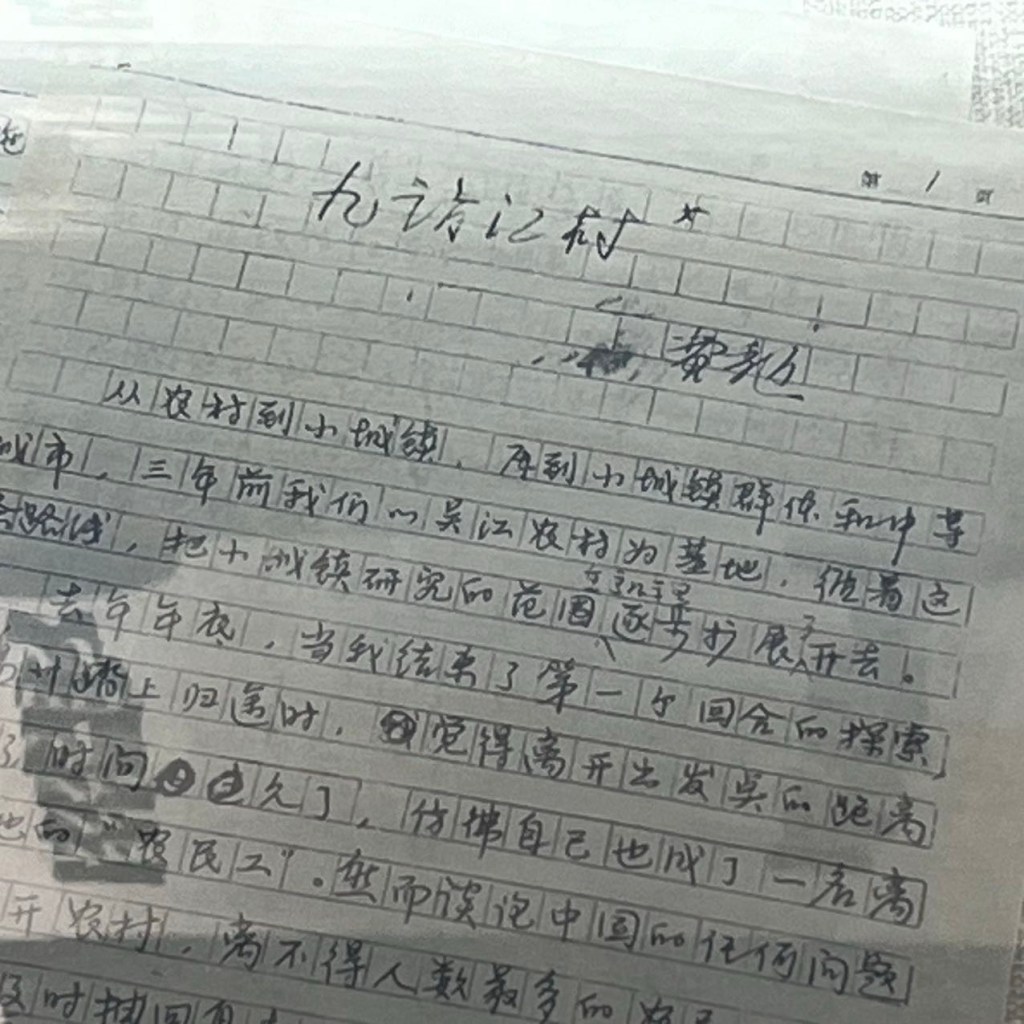 第 1 页
九访江村*
费彭
从农村到小城镇,再到小城镇群体和中等
城市,三年前我们以吴江农村为基地,循着这
路线,把小城镇研究的范围逐步扩展开去。
去年年底,当我结束了第一个回合的探索,
路上归途时,觉得离开出发点的距离
时间也久了,仿佛自己也成了一名离
的"农民工"。然而谈论中国的任何问题
开农村,离不得人数最多的农民
时